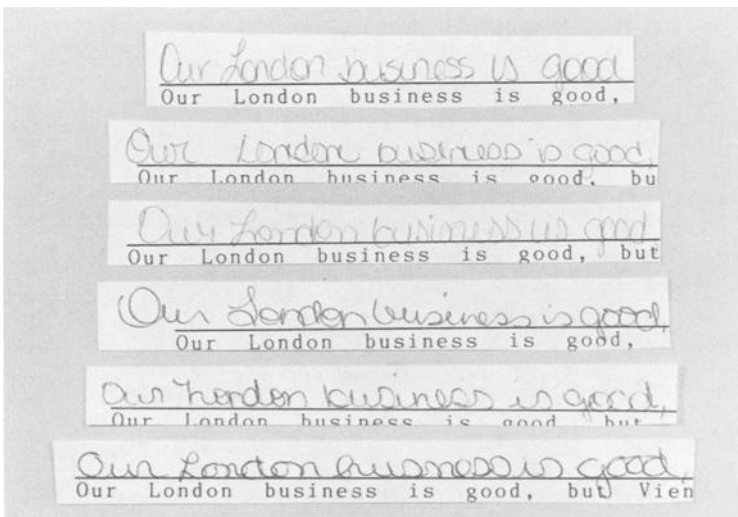 Our London business is good
Our London business is good,
Our London business is good,
Our London business is good, bu
Our London business is good
Our London business is good, but
Our London business is good,
Our London business is good,
Our London business is good,
Our London business is good, but
Our London business is good,
Our London business is good, but Vien